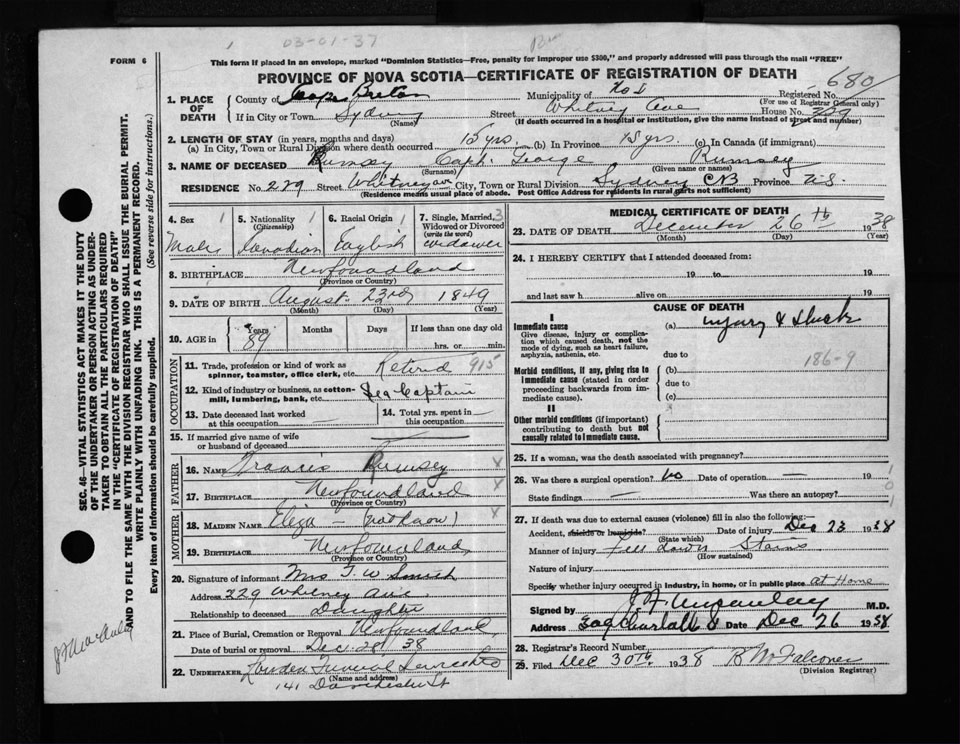 03-01-37
FORM 6
This form if placed in an envelope, marked "Dominion Statistics—Free, penalty for improper use $300," and properly addressed will pass through the mail "FREE"
PROVINCE OF NOVA SCOTIA—CERTIFICATE OF REGISTRATION OF DEATH
680
SEC. 46—VITAL STATISTICS ACT MAKES IT THE DUTY
OF THE UNDERTAKER OR PERSON ACTING AS UNDER-
TAKER TO OBTAIN ALL THE PARTICULARS REQUIRED
IN THE "CERTIFICATE OF REGISTRATION OF DEATH"
AND TO FILE THE SAME WITH THE DIVISION REGISTRAR WHO SHALL ISSUE THE BURIAL PERMIT.
WRITE PLAINLY WITH UNFADING INK. THIS IS A PERMANENT RECORD.
Every item of Information should be carefully supplied. (See reverse side for instructions.)
1. PLACE OF DEATH County of Cape Breton Municipality of No 1 Registered No.
(For use of Registrar General only)
If in City or Town Sydney Street Whitney Ave House No.
(Name) (If death occurred in a hospital or institution, give the name instead of street and number)
2. LENGTH OF STAY (in years, months and days)
(a) In City, Town or Rural Division where death occurred 15 yrs. (b) In Province 15 yrs. (c) In Canada (if immigrant)
3. NAME OF DECEASED Rumsey Capt. George Rumsey
(Surname) (Given name or names)
RESIDENCE No. 229 Street Whitney ave City, Town or Rural Division Sydney CB Province N.S.
(Residence means usual place of abode. Post Office Address for residents in rural parts not sufficient)
4. Sex 1 5. Nationality 1 6. Racial Origin 1 7. Single, Married, 3
(Citizenship) Widowed or Divorced
(write the word)
Male Canadian English widower
8. BIRTHPLACE Newfoundland
(Province or Country)
9. DATE OF BIRTH August 23rd 1849
(Month) (Day) (Year)
10. AGE in Years Months Days If less than one day old
89 hrs. or min.
OCCUPATION
11. Trade, profession or kind of work as
spinner, teamster, office clerk, etc. Retired 915
12. Kind of industry or business, as cotton-
mill, lumbering, bank, etc. Sea Captain
13. Date deceased last worked
at this occupation
14. Total yrs. spent in
this occupation
15. If married give name of wife
or husband of deceased
FATHER
16. NAME Francis Rumsey X
17. BIRTHPLACE Newfoundland X
(Province or Country)
MOTHER
18. MAIDEN NAME Eliza — (not known) X
19. BIRTHPLACE Newfoundland
(Province or Country)
20. Signature of informant Mrs F. W. Smith
Address 229 Whitney Ave
Relationship to deceased Daughter
21. Place of Burial, Cremation or Removal Newfoundland
Date of burial or removal Dec. 28, 38
22. UNDERTAKER Funeral Service
(Name and address)
141 Dorchester St
MEDICAL CERTIFICATE OF DEATH
23. DATE OF DEATH December 26th 1938
(Month) (Day) (Year)
24. I HEREBY CERTIFY that I attended deceased from:
19 to 19
and last saw h alive on 19
CAUSE OF DEATH
I
Immediate cause
Give disease, injury or complica-
tion which caused death, not the
mode of dying, such as heart failure,
asphyxia, asthenia, etc.
(a) injury & Shock
due to
Morbid conditions, if any, giving rise to
immediate cause (stated in order
proceeding backwards from im-
mediate cause).
(b) 186-9
due to
(c)
II
Other morbid conditions (if important)
contributing to death but not
causally related to immediate cause.
25. If a woman, was the death associated with pregnancy?
26. Was there a surgical operation? no Date of operation —
State findings — Was there an autopsy?
27. If death was due to external causes (violence) fill in also the following:—
Accident, suicide or homicide? Date of injury Dec 23 1938
(State which)
Manner of injury Fell down Stairs
(How sustained)
Nature of injury
Specify whether injury occurred in industry, in home, or in public place at Home
Signed by M.D.
Address Date Dec 26 1938
28. Registrar's Record Number
29. Filed Dec 30th 1938 B McFalconer
(Division Registrar)